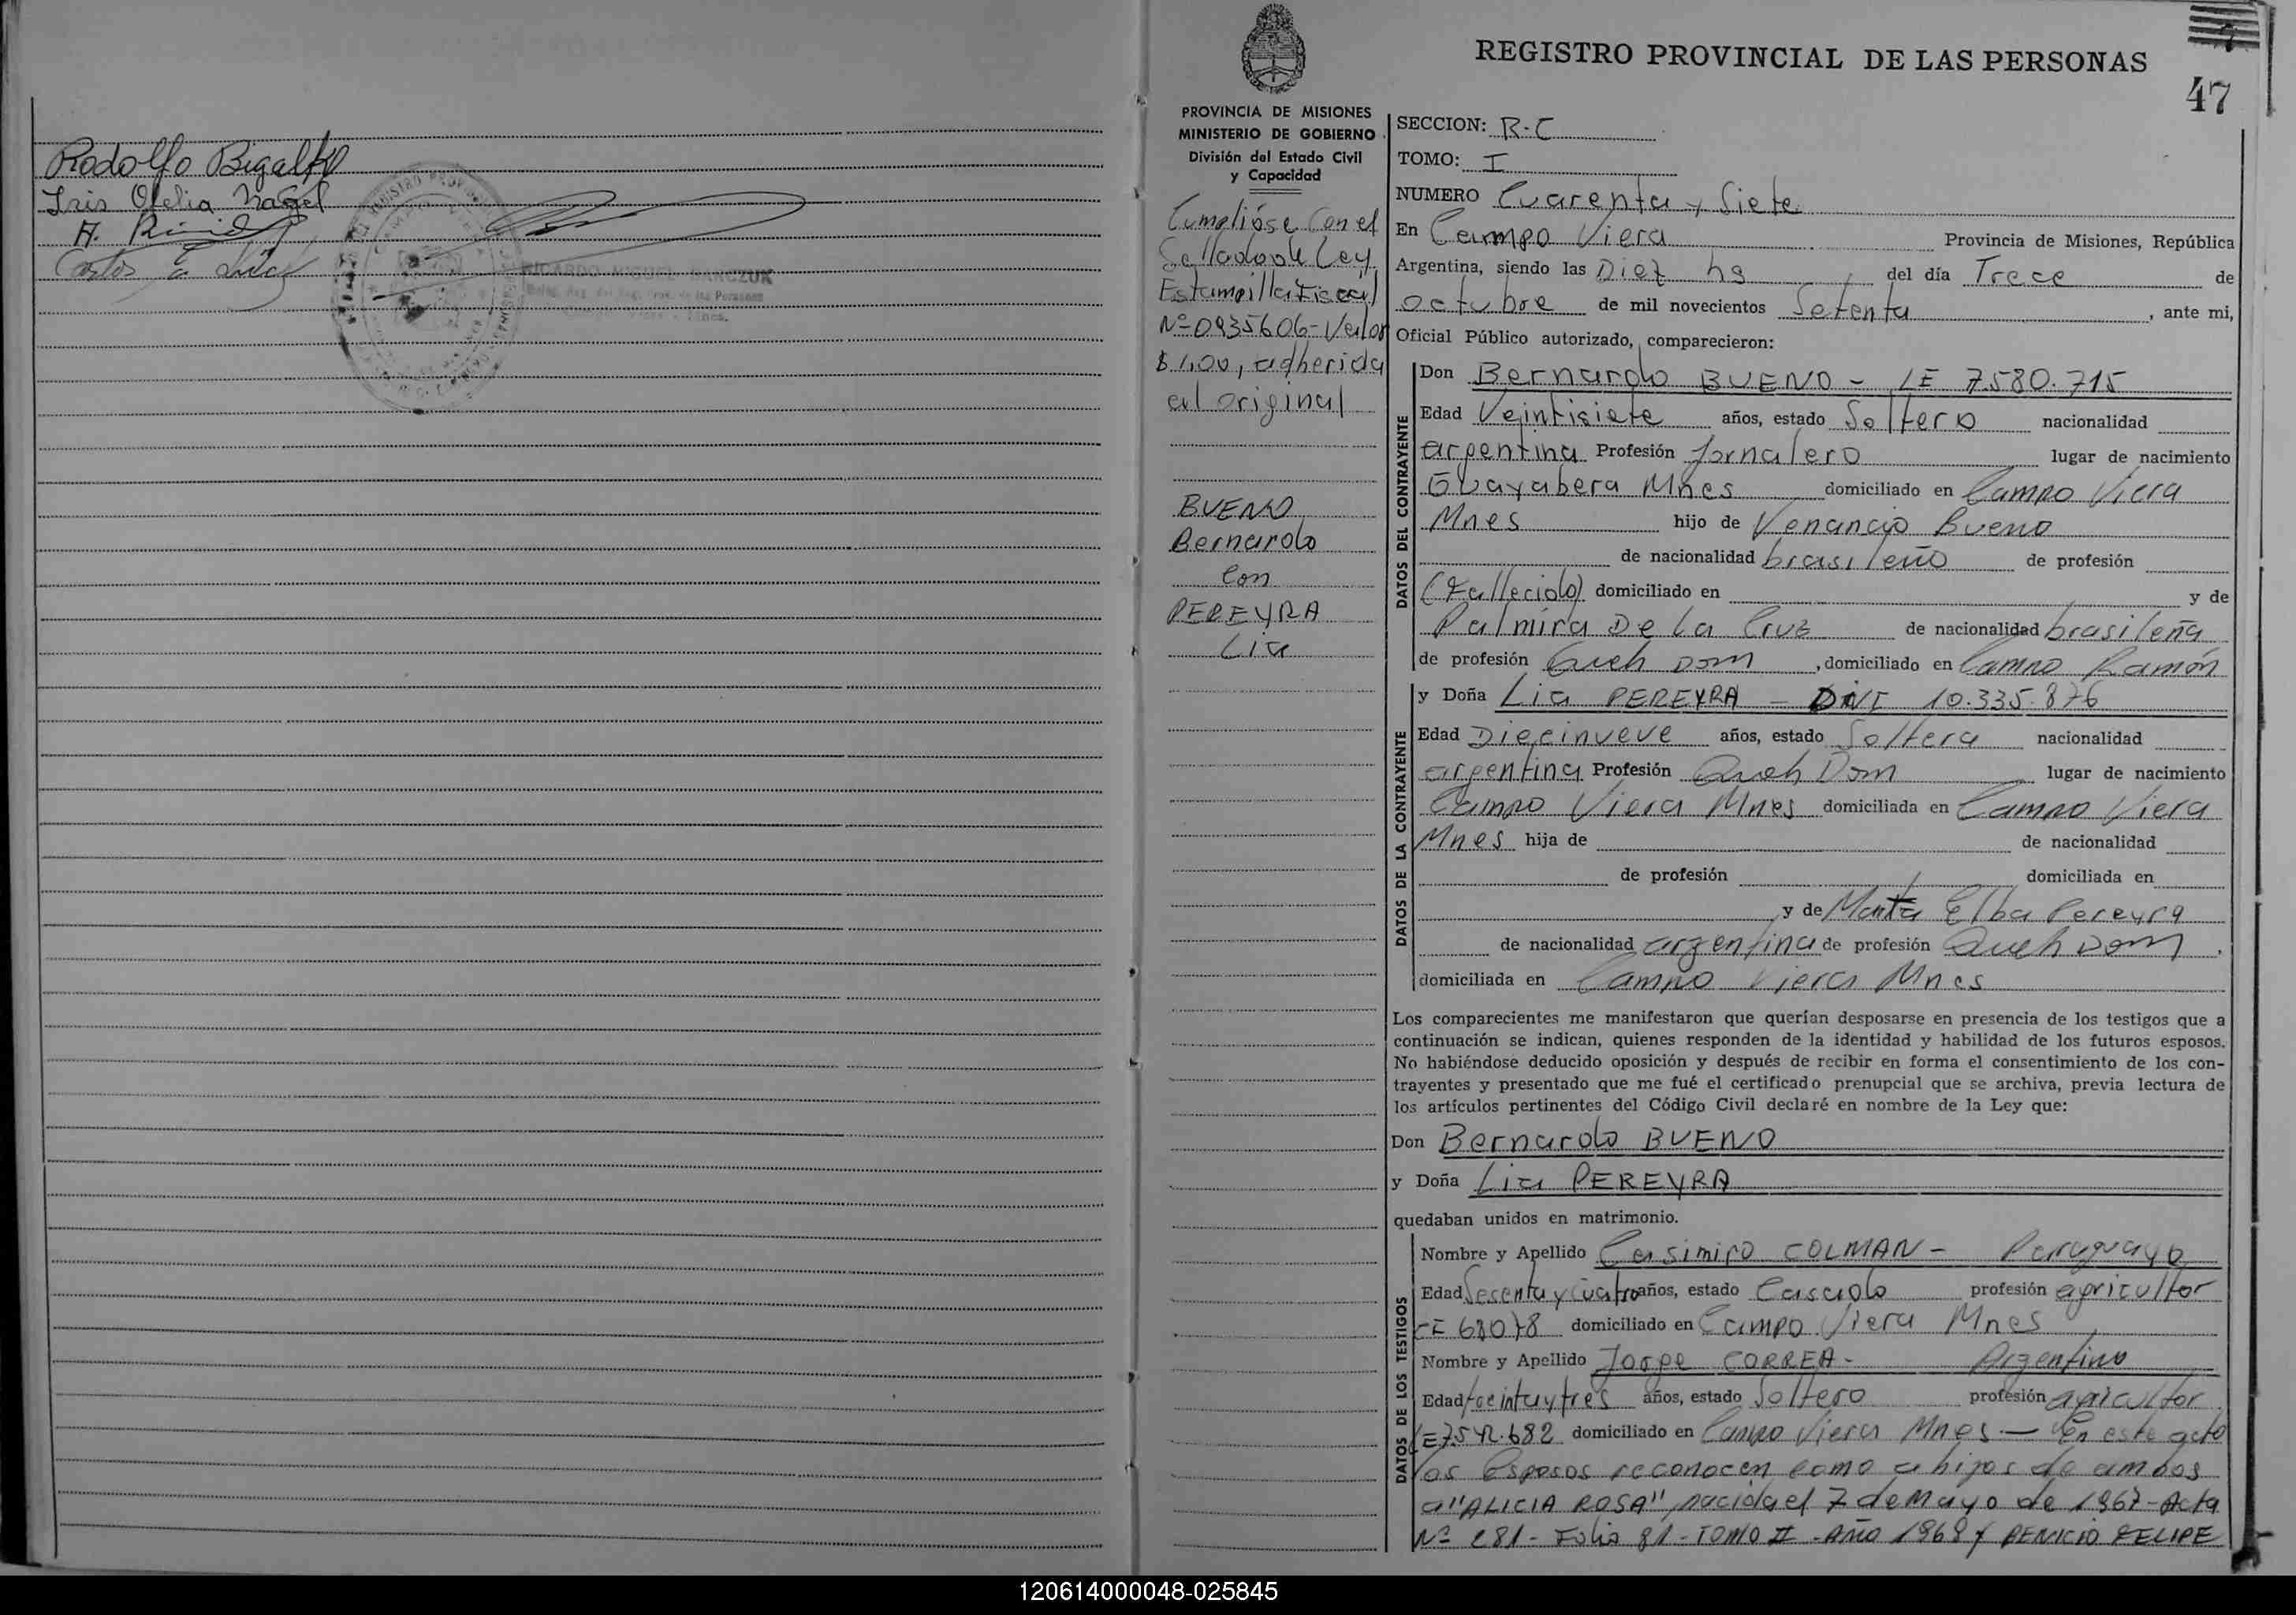 Rodolfo Bigalke
Iris Ofelia Nagel
RICARDO MIGUEL BARCZUK
REGISTRO PROVINCIAL DE LAS PERSONAS
47
PROVINCIA DE MISIONES
MINISTERIO DE GOBIERNO
División del Estado Civil
y Capacidad
Cumplióse Con el
Sellado de Ley
Estampilla Fiscal
Nº 0935606- Valor
$ 1,00, adherida
al original
BUENO
Bernardo
Con
PEREYRA
Lia
SECCION: R.C
TOMO: I
NUMERO Cuarenta y Siete
En Campo Viera Provincia de Misiones, República
Argentina, siendo las Diez hs del día Trece de
octubre de mil novecientos Setenta, ante mi,
Oficial Público autorizado, comparecieron:
DATOS DEL CONTRAYENTE
Don Bernardo BUENO - LE 7.580.715
Edad Veintisiete años, estado Soltero nacionalidad
argentina Profesión Jornalero lugar de nacimiento
Guayabera Mnes domiciliado en Campo Viera
Mnes hijo de Venancio Bueno
de nacionalidad brasileño de profesión
(Fallecido) domiciliado en y de
Palmira De la Cruz de nacionalidad brasileña
de profesión Queh Dom, domiciliado en Campo Ramón
DATOS DE LA CONTRAYENTE
y Doña Lia PEREYRA - DNI 10.335.876
Edad Diecinueve años, estado Soltera nacionalidad
argentina Profesión Queh Dom lugar de nacimiento
Campo Viera Mnes domiciliada en Campo Viera
Mnes hija de de nacionalidad
de profesión domiciliada en
y de Marta Elba Pereyra
de nacionalidad argentina de profesión Queh Dom,
domiciliada en Campo Viera Mnes
Los comparecientes me manifestaron que querían desposarse en presencia de los testigos que a
continuación se indican, quienes responden de la identidad y habilidad de los futuros esposos.
No habiéndose deducido oposición y después de recibir en forma el consentimiento de los con-
trayentes y presentado que me fué el certificado prenupcial que se archiva, previa lectura de
los artículos pertinentes del Código Civil declaré en nombre de la Ley que:
Don Bernardo BUENO
y Doña Lia PEREYRA
quedaban unidos en matrimonio.
DATOS DE LOS TESTIGOS
Nombre y Apellido Casimiro COLMAN - Paraguayo
Edad Sesenta y Cuatro años, estado Casado profesión agricultor
domiciliado en Campo Viera Mnes
Nombre y Apellido Jorge CORREA - Argentino
Edad treinta y tres años, estado Soltero profesión agricultor
domiciliado en Campo Viera Mnes — En este acto
los Esposos reconocen como a hijos de ambos
a "ALICIA ROSA", nacida el 7 de Mayo de 1967 - Acta
Folio 81 - TOMO II - Año 1968 y FELIPE
120614000048-025845